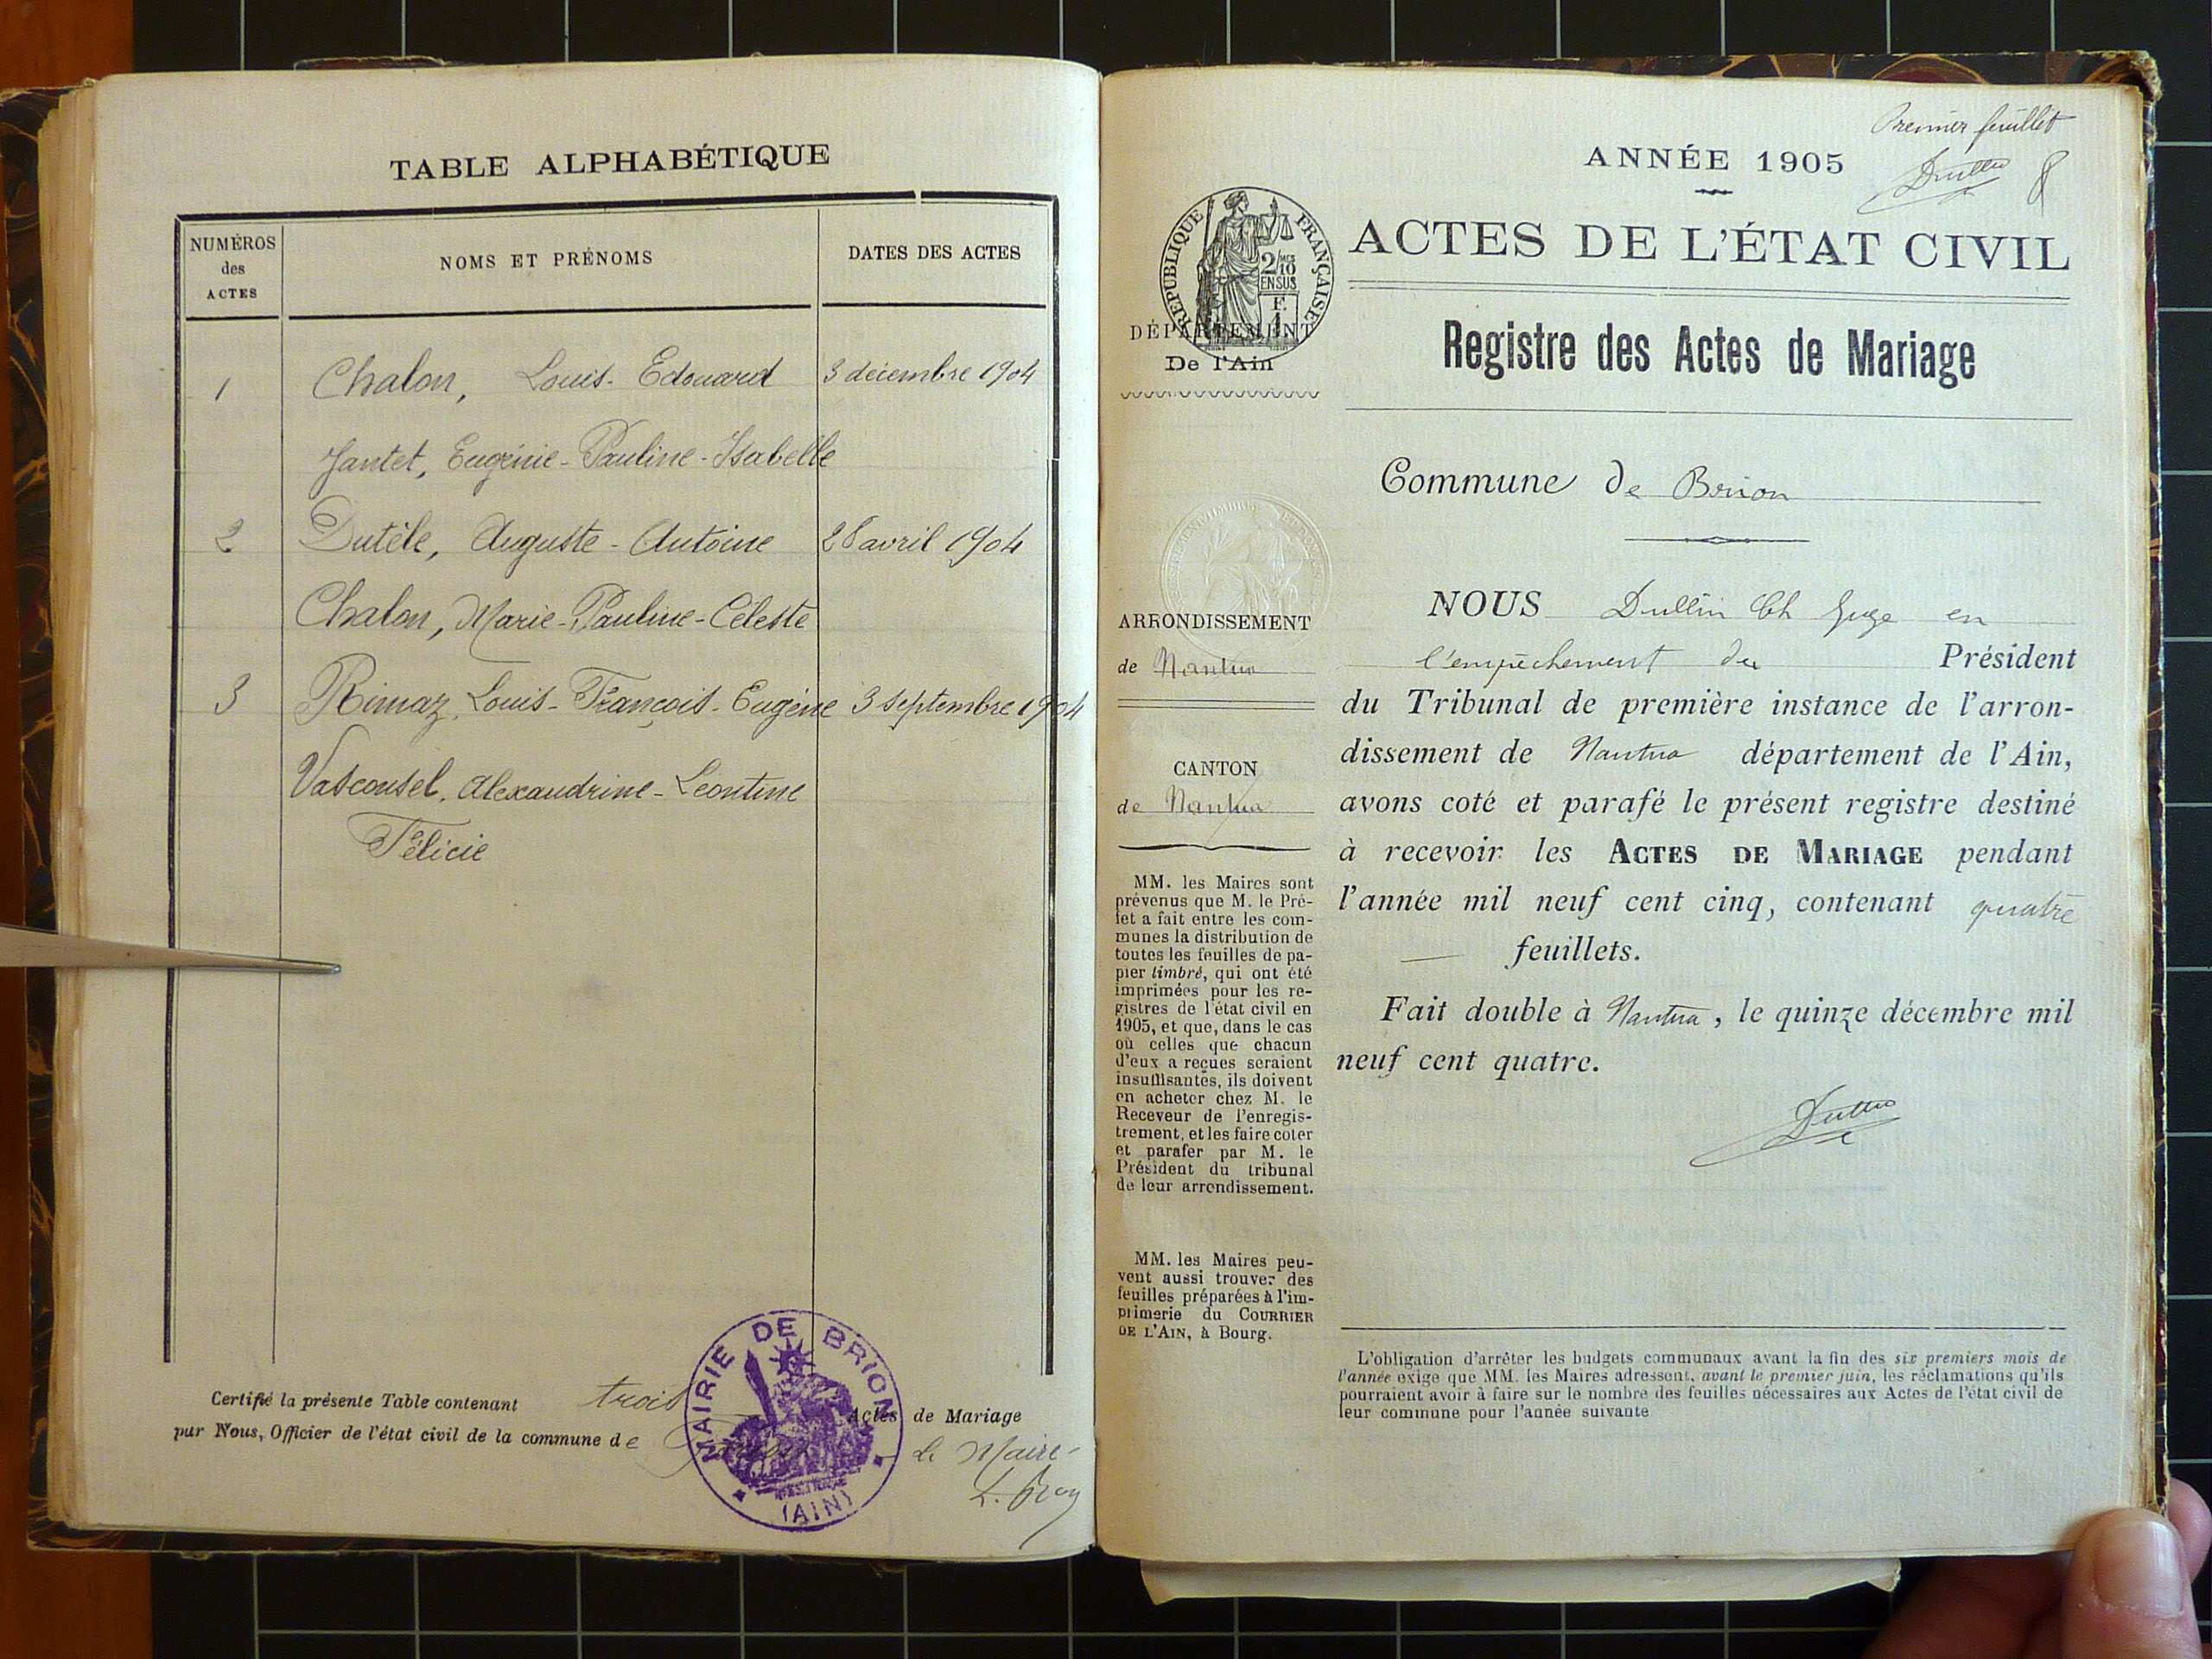 TABLE ALPHABÉTIQUE
NUMÉROS
des
ACTES
NOMS ET PRÉNOMS
DATES DES ACTES
1 Chalon, Louis-Edouard 3 décembre 1904
Jantet, Eugénie-Pauline-Isabelle
2 Dutèle, Auguste-Antoine 28 avril 1904
Chalon, Marie-Pauline-Céleste
3 Rimaz, Louis-François-Eugène 3 septembre 1904
Alexandrine-Léontine
Félicie
Certifié la présente Table contenant trois Actes de Mariage
par Nous, Officier de l'état civil de la commune de
le Maire
MAIRIE DE BRION
(AIN)
Premier feuillet
ANNÉE 1905
ACTES DE L'ÉTAT CIVIL
RÉPUBLIQUE FRANÇAISE
2/10 MES
EN SUS
F.
1
DÉPARTEMENT
De l'Ain
Registre des Actes de Mariage
Commune de Brion
ARRONDISSEMENT
de Nantua
CANTON
de Nantua
MM. les Maires sont
prévenus que M. le Pré-
fet a fait entre les com-
munes la distribution de
toutes les feuilles de pa-
pier timbré, qui ont été
imprimées pour les re-
gistres de l'état civil en
1905, et que, dans le cas
où celles que chacun
d'eux a reçues seraient
insuffisantes, ils doivent
en acheter chez M. le
Receveur de l'enregis-
trement, et les faire coter
et parafer par M. le
Président du tribunal
de leur arrondissement.
MM. les Maires peu-
vent aussi trouver des
feuilles préparées à l'im-
primerie du COURRIER
DE L'AIN, à Bourg.
NOUS Dullin Ch Juge en
l'empêchement du Président
du Tribunal de première instance de l'arron-
dissement de Nantua département de l'Ain,
avons coté et parafé le présent registre destiné
à recevoir les ACTES DE MARIAGE pendant
l'année mil neuf cent cinq, contenant quatre
feuillets.
Fait double à Nantua, le quinze décembre mil
neuf cent quatre.
L'obligation d'arrêter les budgets communaux avant la fin des six premiers mois de
l'année exige que MM. les Maires adressent, avant le premier juin, les réclamations qu'ils
pourraient avoir à faire sur le nombre des feuilles nécessaires aux Actes de l'état civil de
leur commune pour l'année suivante